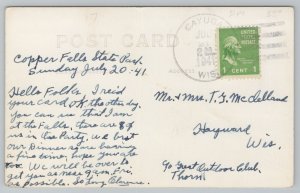 POST CARD
Copper Falls State Park
Sunday July 20-41.
Hello Folks, I rec'd
your card OK the other day.
You can see that I am
at the Falls, there are 8
us in the Party, we brot
our Dinner, some having
a fine time, hope you are
too. We will be over to
get you as near 9 am Fri.
as Possible. So long Clarence.
CAYUGA
JUL
1941
WIS.
1 CENT 1
ADDRESS
Mr. & Mrs. T. J. McClelland
Hayward
Wis.
% East Outdoor Club.